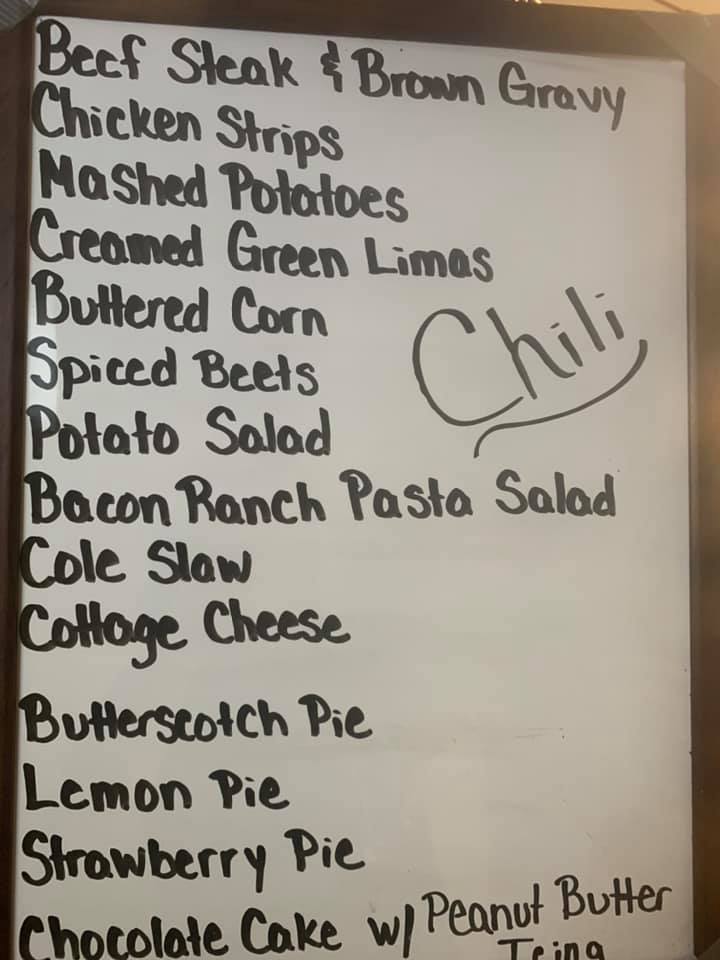 Beef Steak & Brown Gravy
Chicken Strips
Mashed Potatoes
Creamed Green Limas
Buttered Corn
Chili
Spiced Beets
Potato Salad
Bacon Ranch Pasta Salad
Cole Slaw
Cottage Cheese
Butterscotch Pie
Lemon Pie
Strawberry Pie
Chocolate Cake w/ Peanut Butter
Icing